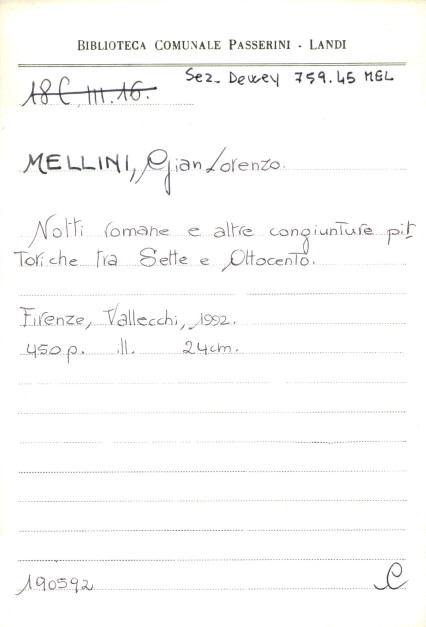 BIBLIOTECA COMUNALE PASSERINI - LANDI
18 C. III. 16.
Sez. Dewey 759.45 MEL
MELLINI, Gian Lorenzo.
Notti romane e altre congiunture pit
toriche tra Sette e Ottocento.
Firenze, Vallecchi, 1992.
450 p. ill. 24 cm.
190592
C